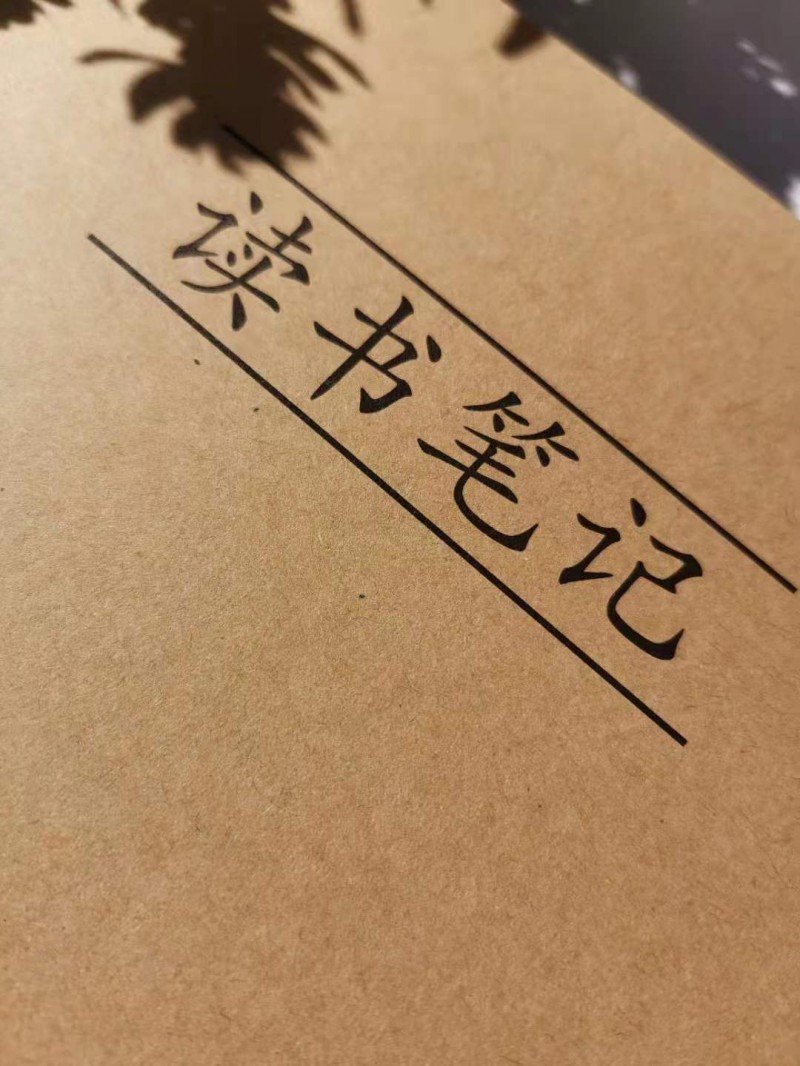 读书笔记